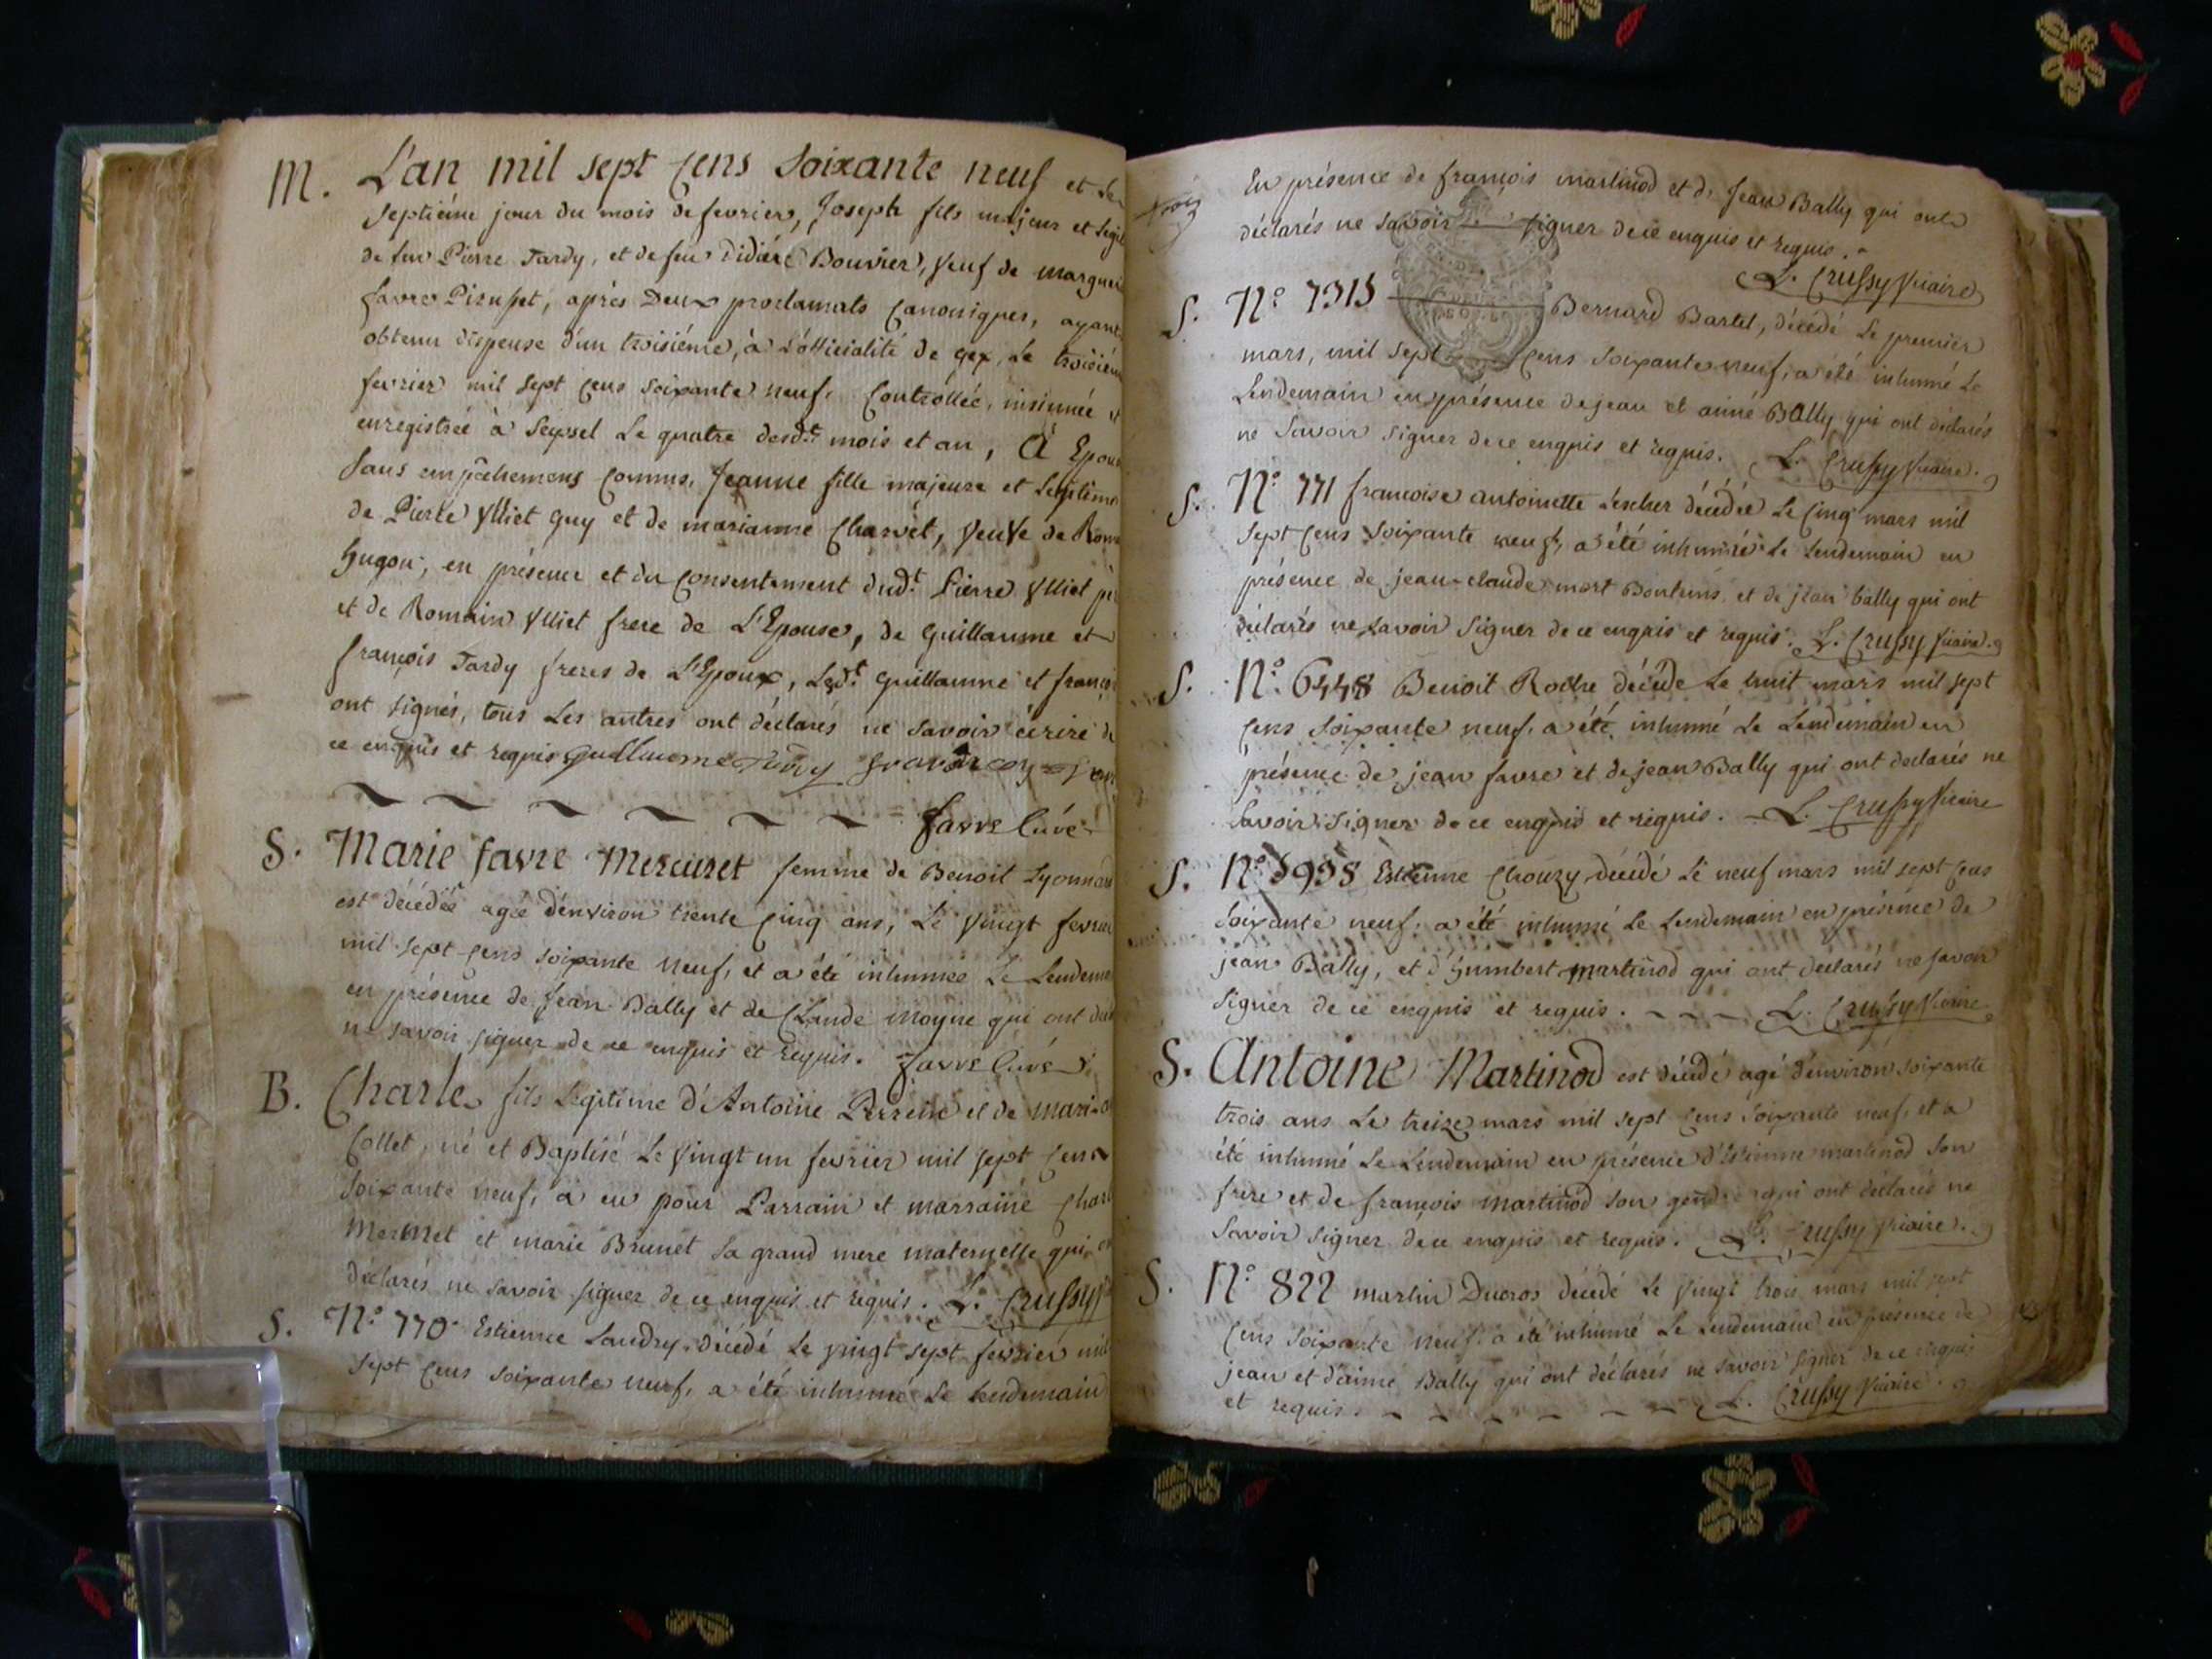 M. L'an mil sept cens soixante neuf et le
septiéme jour du mois de fevrier, Joseph fils majeur et legit
de feu Pierre Tardy, et de feu Didiére Bouvier, veuf de margueri
favre Pirusset, aprés Deux proclamats canoniques, ayant
obtenu dispense d'un troisiéme, à L'officialité de gex, Le troisiém
fevrier mil sept cens soixante neuf. Controllée, insinuée et
enregistrée à Seyssel Le quatre desdt. mois et an, A Epousé
sans empêchemens connus, Jeanne fille majeure et Legitime
de Pierre Ylliet guy et de marianne Charvêt, veuve de Rom
hugon, en présence et du consentement dudt. Pierre Ylliet pe
et de Romain Ylliet frere de L'Epouse, de guillaume et
françois Tardy freres de L'Epoux, Lesdt. guillaume et françoi
ont signés, tous Les autres ont déclarés ne savoir écrire de
ce enquis et requis guilliaume
favre Curé
S. Marie favre Mercuret femme de Benoit Lyonnard
est décédée agée d'environ trente cinq ans, Le vingt fevrier
mil sept cens soixante neuf, et a été inhumée Le Lendemain
en présence de jean Bally et de Claude moyne qui ont decl
ne savoir signer de ce enquis et requis. favre Curé
B. Charle fils Legitime d'Antoine Perrein et de mari
Collet, né et Baptisé Le vingt un fevrier mil sept cens
soixante neuf, a eu pour Parrain et marraine Charl
Mermet et marie Brunet sa grand mere maternelle qui
déclarés ne savoir signer de ce enquis et requis. L. Crussy
S. N.º 770. Estienne Landry, décédé Le vingt sept fevrier mil
sept cens soixante neuf, a été inhumé Le Lendemain
En présence de françois martinod et de Jean Bally qui ont
déclarés ne savoir signer de ce enquis et requis.
L. Crussy Vicaire
S. N.º 7315 Bernard Bartel, décédé Le premier
mars, mil sept cens soixante neuf, a été inhumé Le
Lendemain en présence de jean et aimé Bally qui ont déclarés
ne savoir signer de ce enquis et requis. L. Crussy Vicaire.
S. N.º 771 francoise antoinette Lescher décédée Le cinq mars mil
sept cens soixante neuf, a été inhumée Le Lendemain en
présence de jean-claude mort Bontems et de jean bally qui ont
déclarés ne savoir signer de ce enquis et requis. L. Crussy Vicaire.
S. N.º 6448 Benoit Roche décédé Le huit mars mil sept
cens soixante neuf, a été inhumé Le Lendemain en
présence de jean favre et de jean Bally qui ont declarés ne
savoir signer de ce enquis et requis. L. Crussy Vicaire
S. N.º 5958 Estienne Chouzy décédé Le neuf mars mil sept cens
soixante neuf, a été inhumé Le Lendemain en présence de
jean Bally, et d'humbert martinod qui ont déclarés ne savoir
signer de ce enquis et requis. L. Crussy Vicaire
S. Antoine Martinod est décédé agé d'environ soixante
trois ans Le treize mars mil sept cens soixante neuf, et a
été inhumé Le Lendemain en présence d'Estienne martinod son
frere et de françois martinod son gendre qui ont déclarés ne
savoir signer de ce enquis et requis. L. Crussy Vicaire.
S. N.º 822 martin Ducros décédé Le vingt trois mars mil sept
cens soixante neuf a été inhumé Le Lendemain en présence de
jean et d'aimé Bally qui ont déclarés ne savoir signer de ce enquis
et requis. L. Crussy Vicaire.